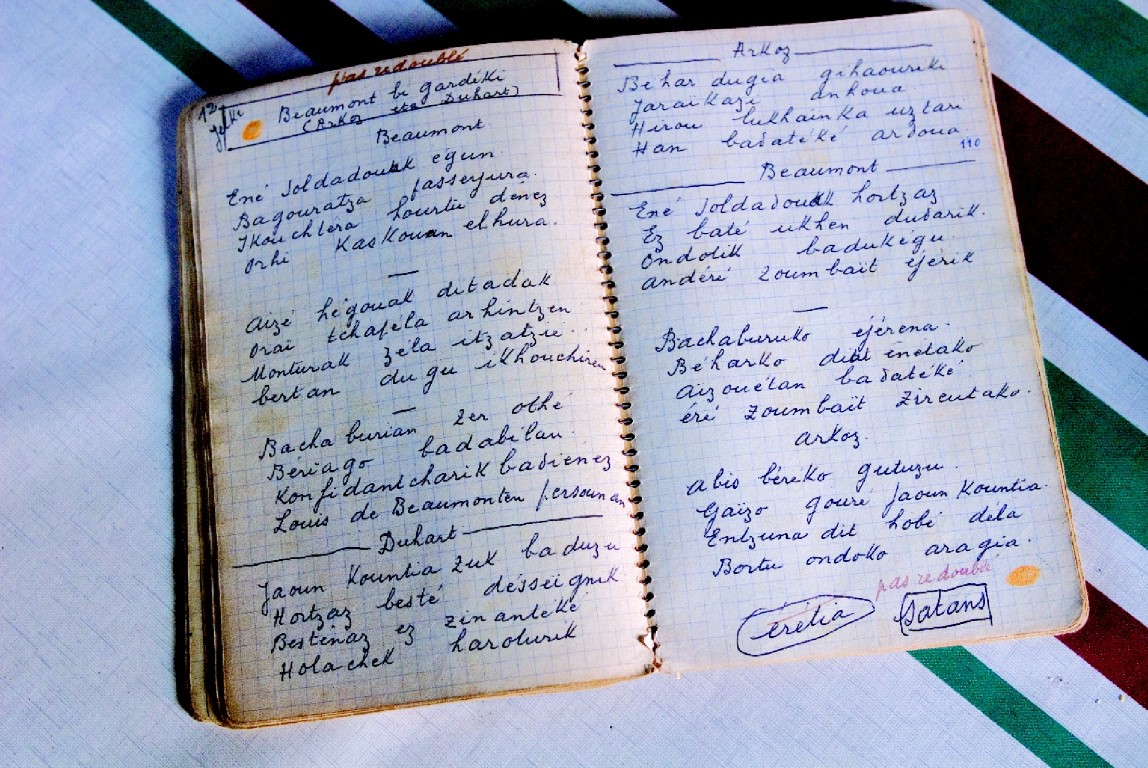 pas redoublé
12 jelki
Beaumont bi gardéki
(Arkoz eta Duhart)
Beaumont
Ené Soldadouak égun
Bagouratza passeyura
Ikouchtera hourtu dénez
Orhi Kaskouan elhura.
Aizé hégouak ditadak
Orai tchapéla arhintzen
Monturak zéla itzatzié
bertan dugu ikhouchiren
Bacha burian zer othé
Bériago badabilan
Konfidantcharik badienez
Louis de Beaumonten persounan
Duhart
Jaoun Kountia zuk baduzu
Hortzaz besté désseignik
Bestinaz ez zinanteké
Holachek harolurik
Arkoz
Béhar dugia gihaouriki
Jaraikazi ankoua
Hirou lukhainka uztari
Han badatéké ardoua
110
Beaumont
Ené Soldadouak hortzaz
Ez baté ukhen dudarik.
Ondotik badukégu
andéré zoumbaït éjerik
Bachaburuko éjérena.
Béharko diat enetako
aizouétan badatéké
éré zoumbaït zireutako.
arkoz.
abis béreko gutuzu.
Gaïzo gouré Jaoun Kountia.
Entzuna dit hobé dela
Bortu ondoko aragia.
pas redoublé
érétia
Satans